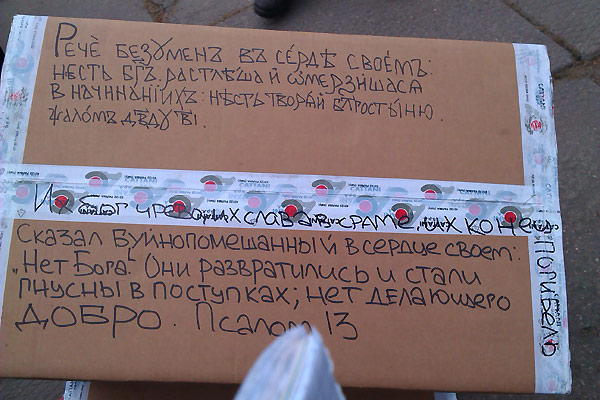 Рече̑ безуменъ въ се́рдцѣ свое́мъ:
нѣсть бг҃ъ, растлѣша и҆ ѡ҆мерзи́шася
в начина́нїихъ: нѣсть творѧ́й бл҃госты́ню.
ѱало́мъ дв҃ду гі.
CATTANI
Их бог чрево, их слава в сраме, их конец погибель
Сказал буйнопомешанный в сердце своем:
„Нет Бога“. Они развратились и стали
гнусны в поступках; нет делающего
добро. Псалом 13